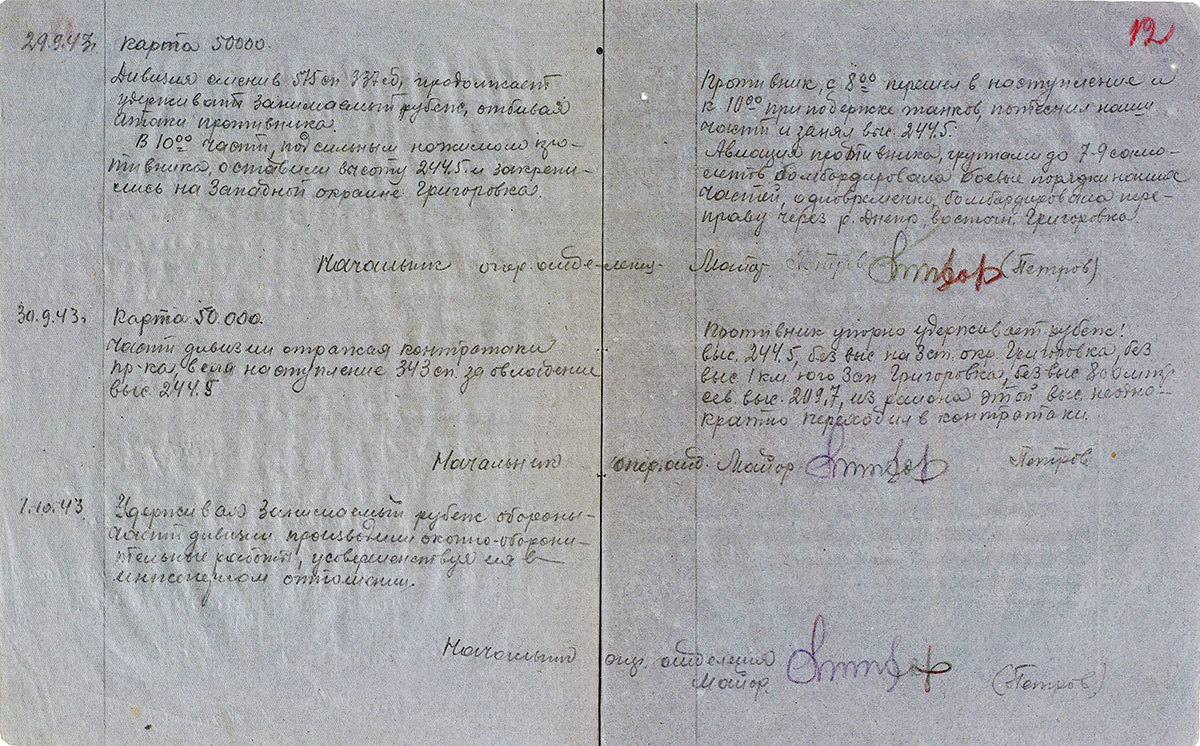 12
29.9.43г.
Карта 50000.
Дивизия сменив 575сп 337сд, продолжает
удерживать занимаемый рубеж, отбивая
атаки противника.
В 10⁰⁰ части, под сильным нажимом про-
тивника, оставили высоту 244.5. и закрепи-
лись на Западной окраине Григоровка.
Противник, с 8⁰⁰ перешел в наступление и
к 10⁰⁰ при подержке танков, потеснил наши
части и занял выс. 244.5.
Авиация противника, группами до 7-9 само-
летов бомбардировала боевые порядки наших
частей, одновременно, бомбардировала пере-
праву через р. Днепр, восточн. Григоровка.
Начальник опер. отде-лени Майор Петров (Петров)
30.9.43г.
Карта 50.000.
Части дивизии отражая контратаки
пр-ка, вели наступление 343сп. за овладение
выс. 244.5
Противник упорно удерживает рубеж:
выс. 244,5, без выс на Зап. окр. Григоровка, без
выс. 1км. юго Зап Григоровка, без выс 800 мтр
сев. выс. 209,7, из района этой выс. неодно-
кратно переходил в контратаки.
Начальник опер. отд. Майор Петров
1.10.43
Удерживая Занимаемый рубеж обороны-
части дивизии производили окопно-оборони-
тельные работы, усовершенствуя их в
инженерном отношении.
Начальник опер. отделения
Майор (Петров)